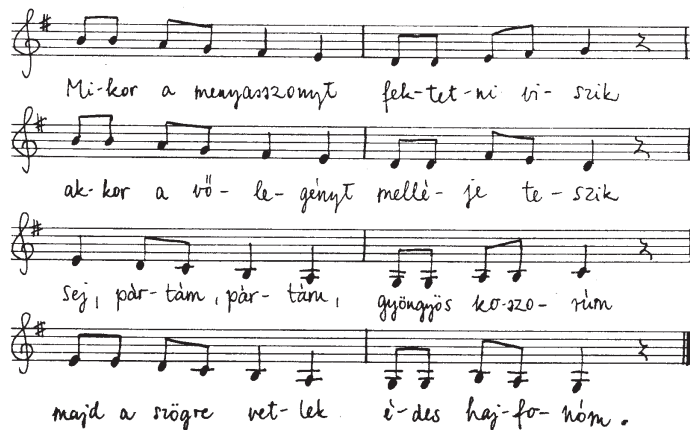 Mi-kor a menyasszonyt fek-tet-ni vi-szik
ak-kor a vő-le-gényt mellé-je te-szik
Sej, pár-tám, pár-tám, gyöngyös ko-szo-rúm
majd a szögre vet-lek é-des haj-fo-nóm.